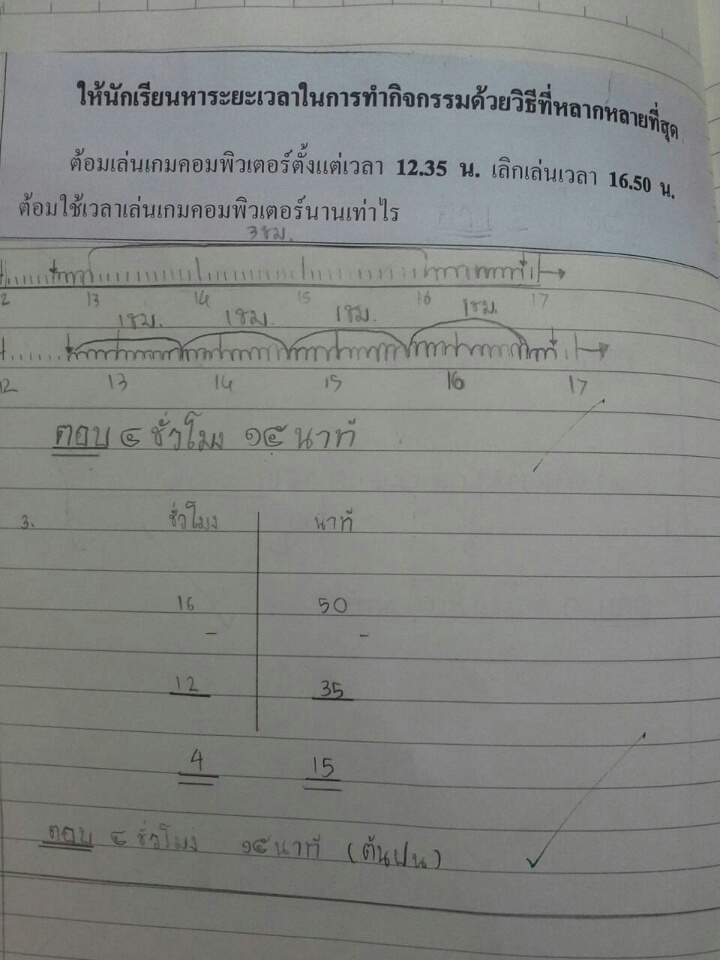 ให้นักเรียนหาระยะเวลาในการทำกิจกรรมด้วยวิธีที่หลากหลายที่สุด
ต้อมเล่นเกมคอมพิวเตอร์ตั้งแต่เวลา 12.35 น. เลิกเล่นเวลา 16.50 น.
ต้อมใช้เวลาเล่นเกมคอมพิวเตอร์นานเท่าไร
3ชม.
2 13 14 15 16 17
1ชม. 1ชม. 1ชม. 1ชม.
12 13 14 15 16 17
ตอบ ๔ ชั่วโมง ๑๕ นาที
3. ชั่วโมง นาที
16 50
- -
12 35
4 15
ตอบ ๔ ชั่วโมง ๑๕ นาที (ต้นฝน)